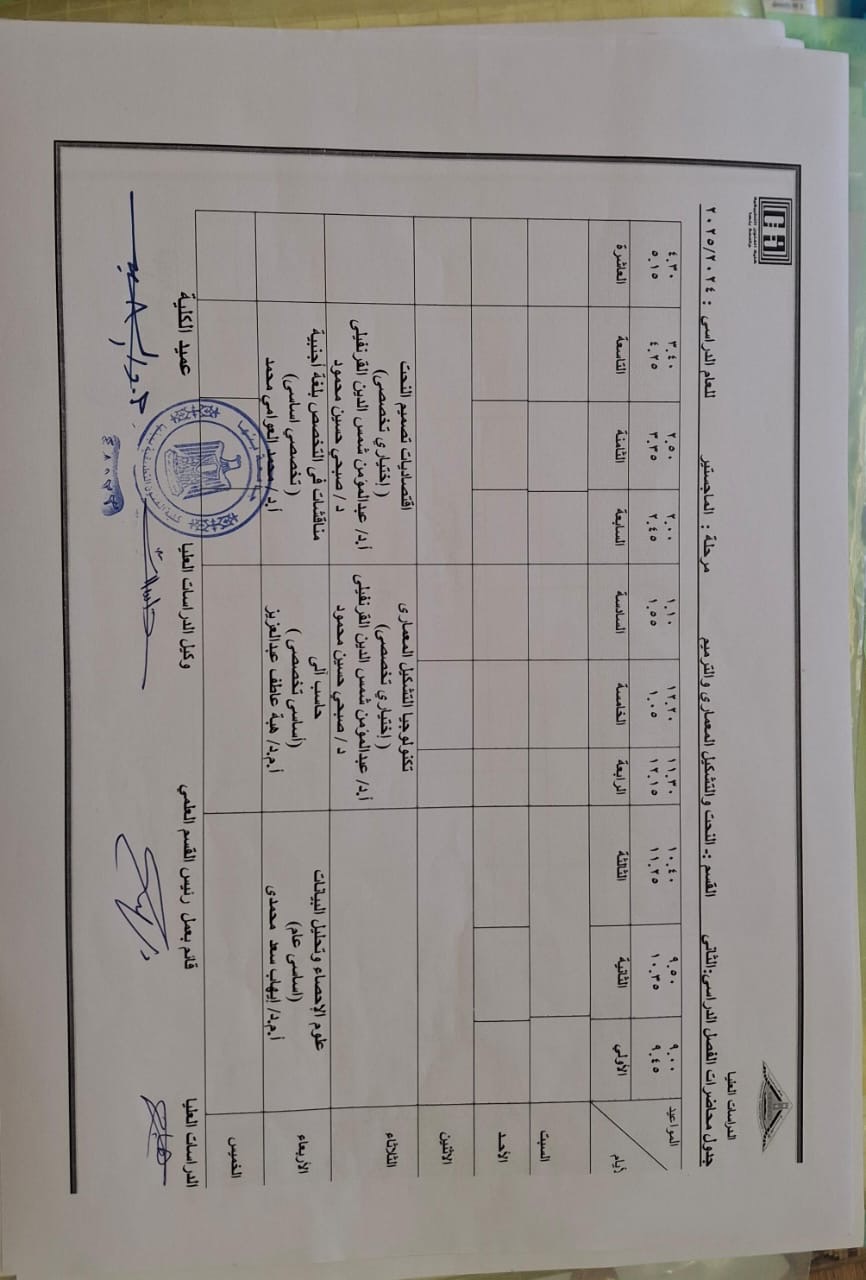 الدراسات العليا
جدول محاضرات الفصل الدراسى:الثانى القسم :- النحت والتشكيل المعمارى والترميم مرحلة : الماجستير للعام الدراسى : ٢٠٢٥/٢٠٢٤
المواعيد ٩.٠٠ ٩.٥٠ ١٠.٤٠ ١١.٣٠ ١٢.٢٠ ١.١٠ ٢.٠٠ ٢.٥٠ ٣.٤٠ ٤.٣٠
٩.٤٥ ١٠.٣٥ ١١.٢٥ ١٢.١٥ ١.٠٥ ١.٥٥ ٢.٤٥ ٣.٣٥ ٤.٢٥ ٥.١٥
أيام الأولي الثانية الثالثة الرابعة الخامسة السادسة السابعة الثامنة التاسعة العاشرة
السبت
الأحد
الاثنين
الثلاثاء
تكنولوجيا التشكيل المعمارى
( إختياري تخصصى)
أ.د/ عبدالمؤمن شمس الدين القرنفيلى
د / صبحي حسين محمود
اقتصاديات تصميم النحت
( إختياري تخصصى)
أ.د/ عبدالمؤمن شمس الدين القرنفيلى
د / صبحي حسين محمود
الأربعاء
علوم الإحصاء وتحليل البيانات
(اساسى عام)
أ.م.د/ إيهاب سعد محمدى
حاسب آلى
(أساسى تخصصى )
أ.م.د/ هبة عاطف عبدالعزيز
مناقشات فى التخصص بلغة أجنبية
( تخصصي اساسى)
أ.د/ محمد العوامي محمد
الخميس
الدراسات العليا قائم بعمل رئيس القسم العلمي وكيل الدراسات العليا عميد الكلية